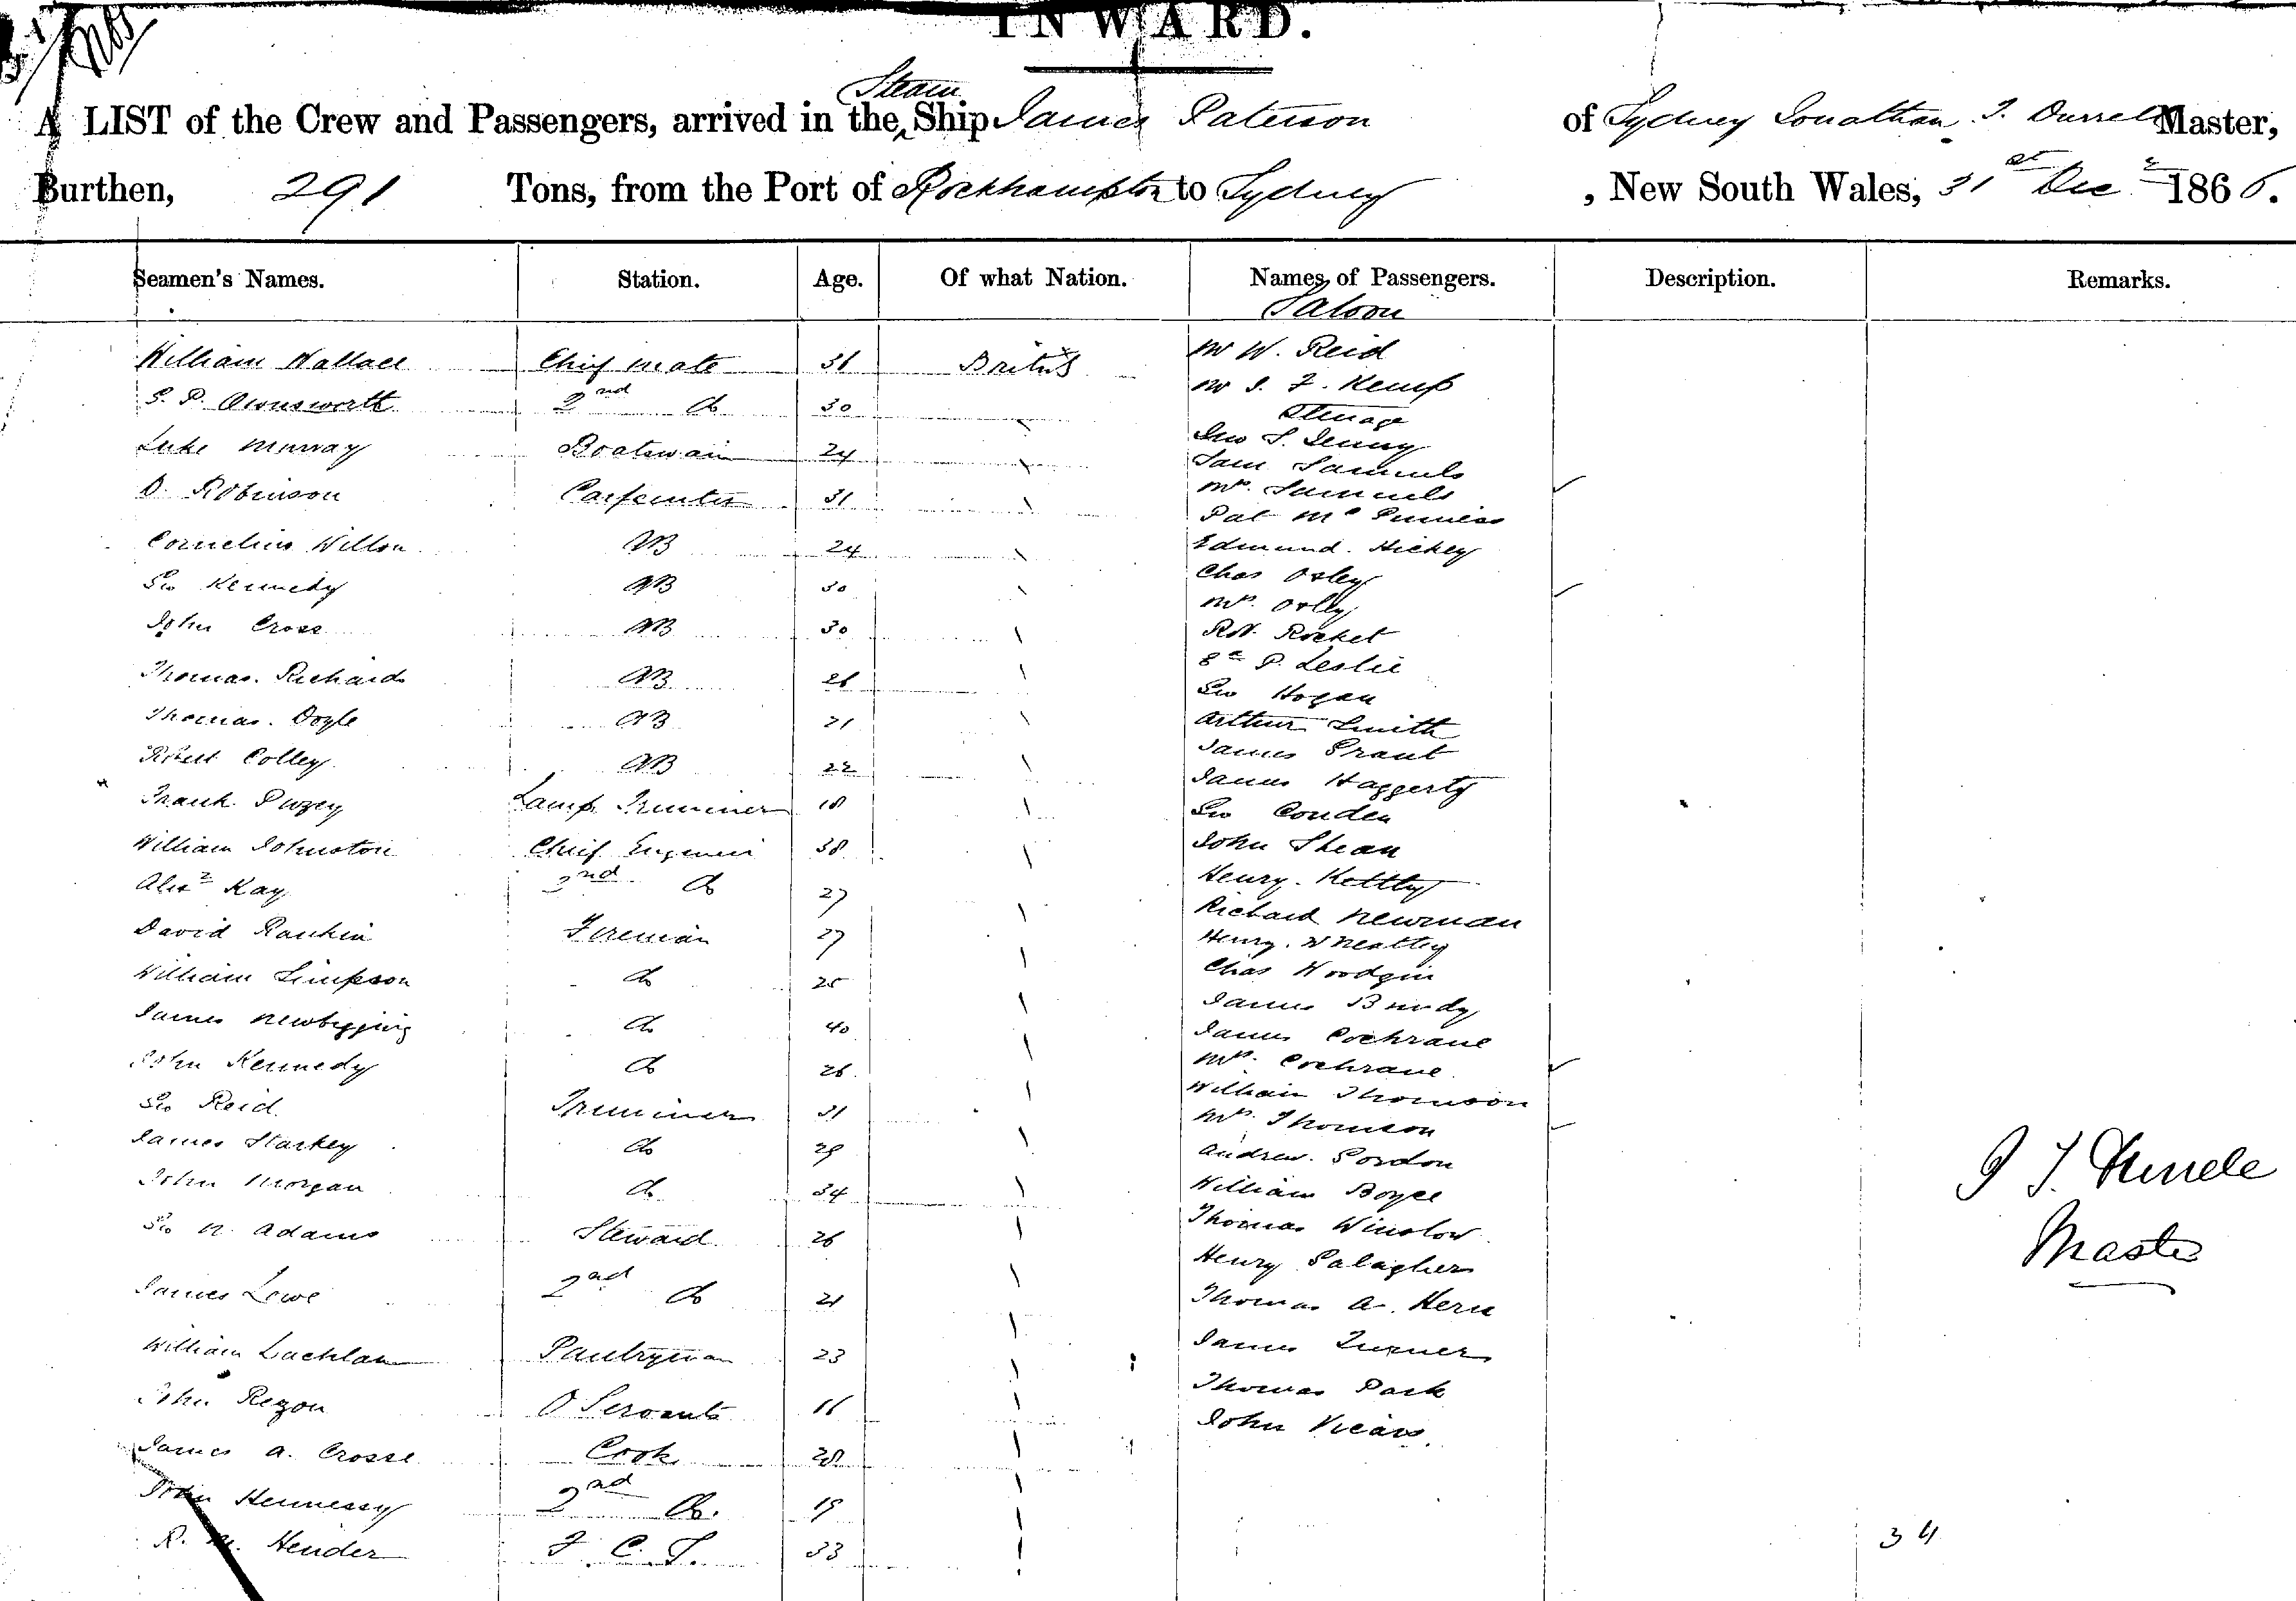 INWARD.
A LIST of the Crew and Passengers, arrived in the Steam Ship James Paterson of Sydney Jonathan T. Durrell Master,
Burthen, 291 Tons, from the Port of Rockhampton to Sydney, New South Wales, 31st Dec 1866.
Seamen's Names. Station. Age. Of what Nation. Names of Passengers. Description. Remarks.
Saloon
William Wallace Chief Mate 36 British Mr W. Reid
Mr J. F. Kemp
S. P. Ownsworth 2nd do 30
Steerage
Luke Murray Boatswain 24 Geo S. Denny
Sam Samuels
D. Robinson Carpenter 31 Mrs. Samuels
Pat Mc
Cornelius Wilson AB 24 Edmund. Hickey
Geo Kennedy AB 30 Chas Oxley
Mrs. Oxley
John Cross AB 30 Rot. Rocket
P. Leslie
Thomas. Richards AB 26 Geo Hogan
Thomas. Doyle AB 21 Arthur Smith
James Grant
Robert Colley AB 22 James Haggerty
Frank Puzey Lamp Trimmer 18 Geo Couden
William Johnston Chief Engineer 38 John Shean
Alexr Kay 2nd do 27 Henry. Kettly
Richard Newman
David Rankin Fireman 27 Henry. Wheatley
William Simpson do 25 Chas Woodgin
James Bundy
James Newbigging do 40 James Cochrane
John Kennedy do 26 Mrs. Cochrane
William Thomson
Geo Reid Trimmer 31 Mrs. Thomson
James Starkey do 29 Andrew. Gordon
John Morgan do 34 William Boyce
Thomas Winslow
Geo N. Adams Steward 26
Henry Galagher
James Lowe 2nd do 21 Thomas A. Hern
William Lachlan Pantryman 23 James Turner
Thomas Park
John Regon O Servants 16
John Vicars.
James A. Crosse Cook 28
John Hennessy 2nd do. 19
R. M. Hender F. C. S. 33
J T. Durrell
Master
34